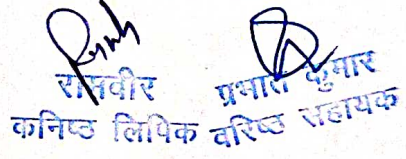 रामवीर प्रभात कुमार
कनिष्ठ लिपिक वरिष्ठ सहायक